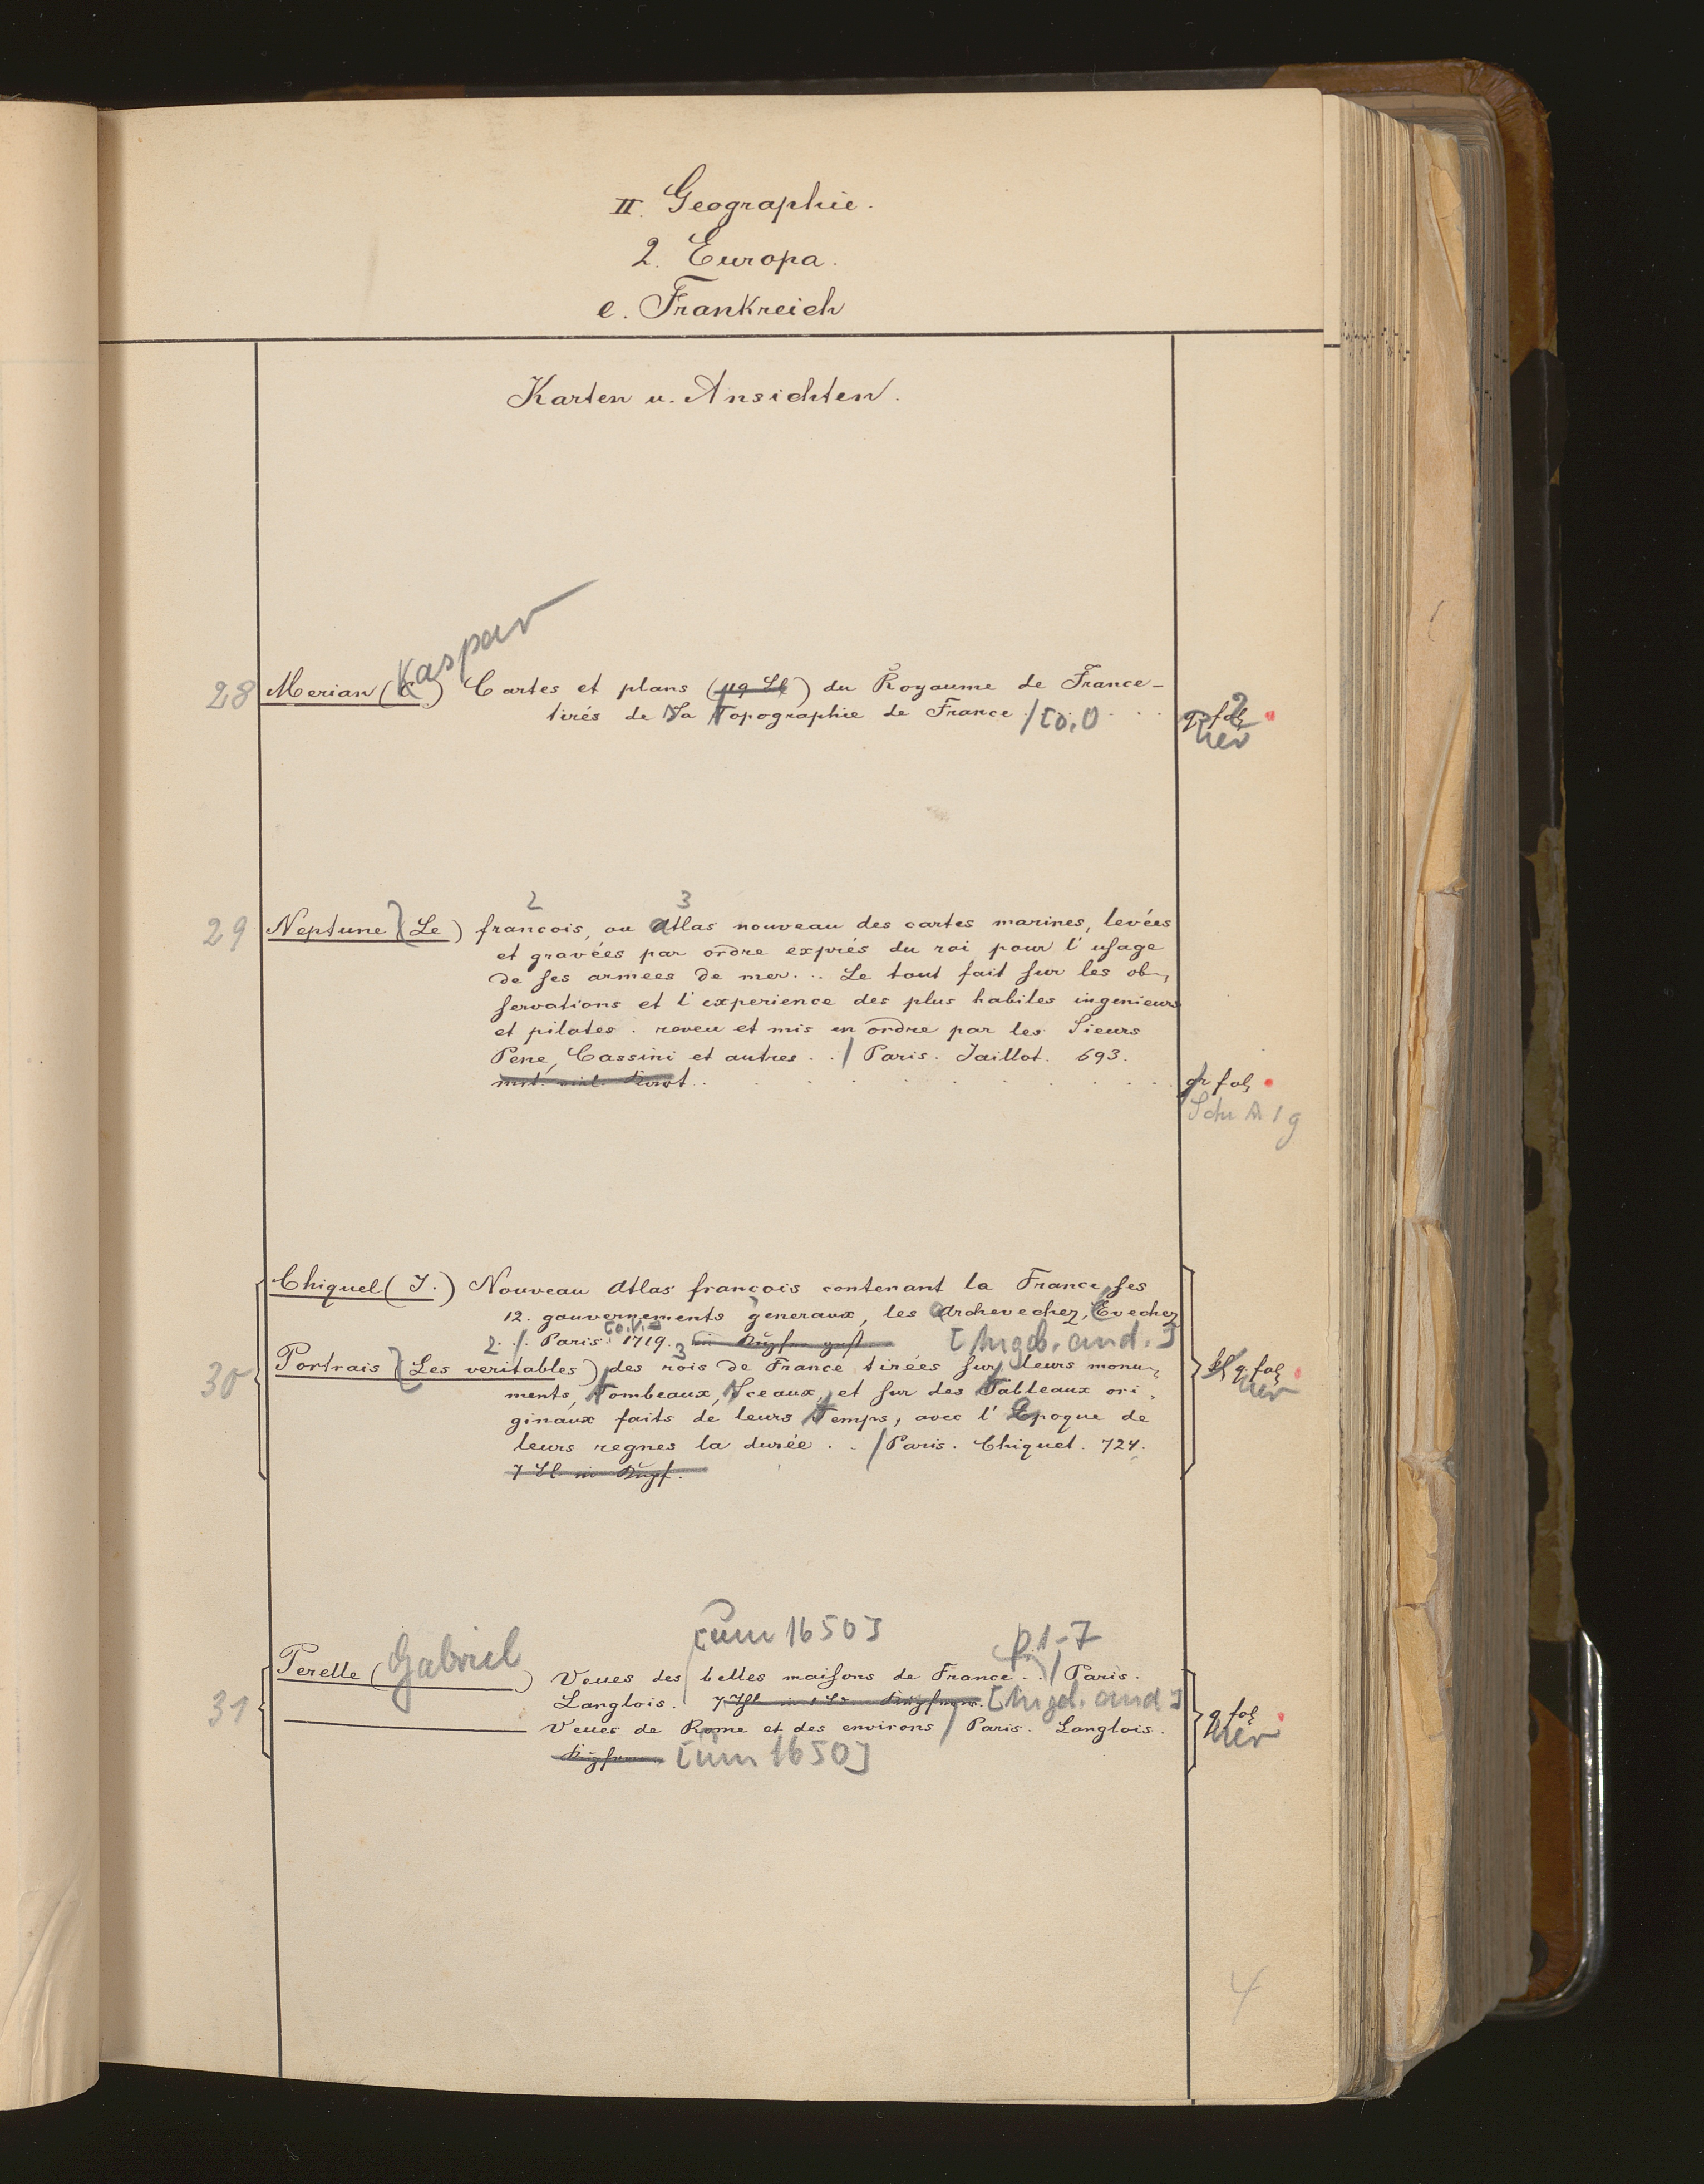 II. Geographie.
2. Europa.
e. Frankreich
Karten u. Ansichten.
Kaspar
28 Merian (C.) Cartes et plans (119 Bl) du Royaume de France
tirés de la Topographie de France. / [o.O
q. fol. 2
29 Neptune (Le) francois, ou atlas nouveau des cartes marines, levées
2 3
et gravées par ordre exprés du roi pour l'usage
de ses armees de mer... Le tout fait sur les ob-
servations et l'experience des plus habiles ingenieurs
et pilotes. reveu et mis en ordre par les Sieurs
Pene, Cassini et autres.. / Paris. Jaillot. 693.
gr fol.
Chiquel (J.) Nouveau Atlas françois contenant la France, ses
12. gouvernements generaux, les Archevechez, Evechez
2. /. Paris. 1719. [Angeb. and.]
30 Portrais (Les veritables) des rois de France tirées sur leurs monu-
3
ments, Tombeaux, Sceaux, et sur des Tableaux ori-
ginaux faits de leurs Temps, avec l'Epoque de
leurs regnes la durée.. / Paris. Chiquel. 724.
7 Bl. in Kupf.
q. fol.
[um 1650] p. 1-7
Perelle (Gabriel) Veues des belles maisons de France.. / Paris.
31 Langlois. [Angeb. and.]
Veues de Rome et des environs / Paris. Langlois.
[um 1650]
q. fol.
4